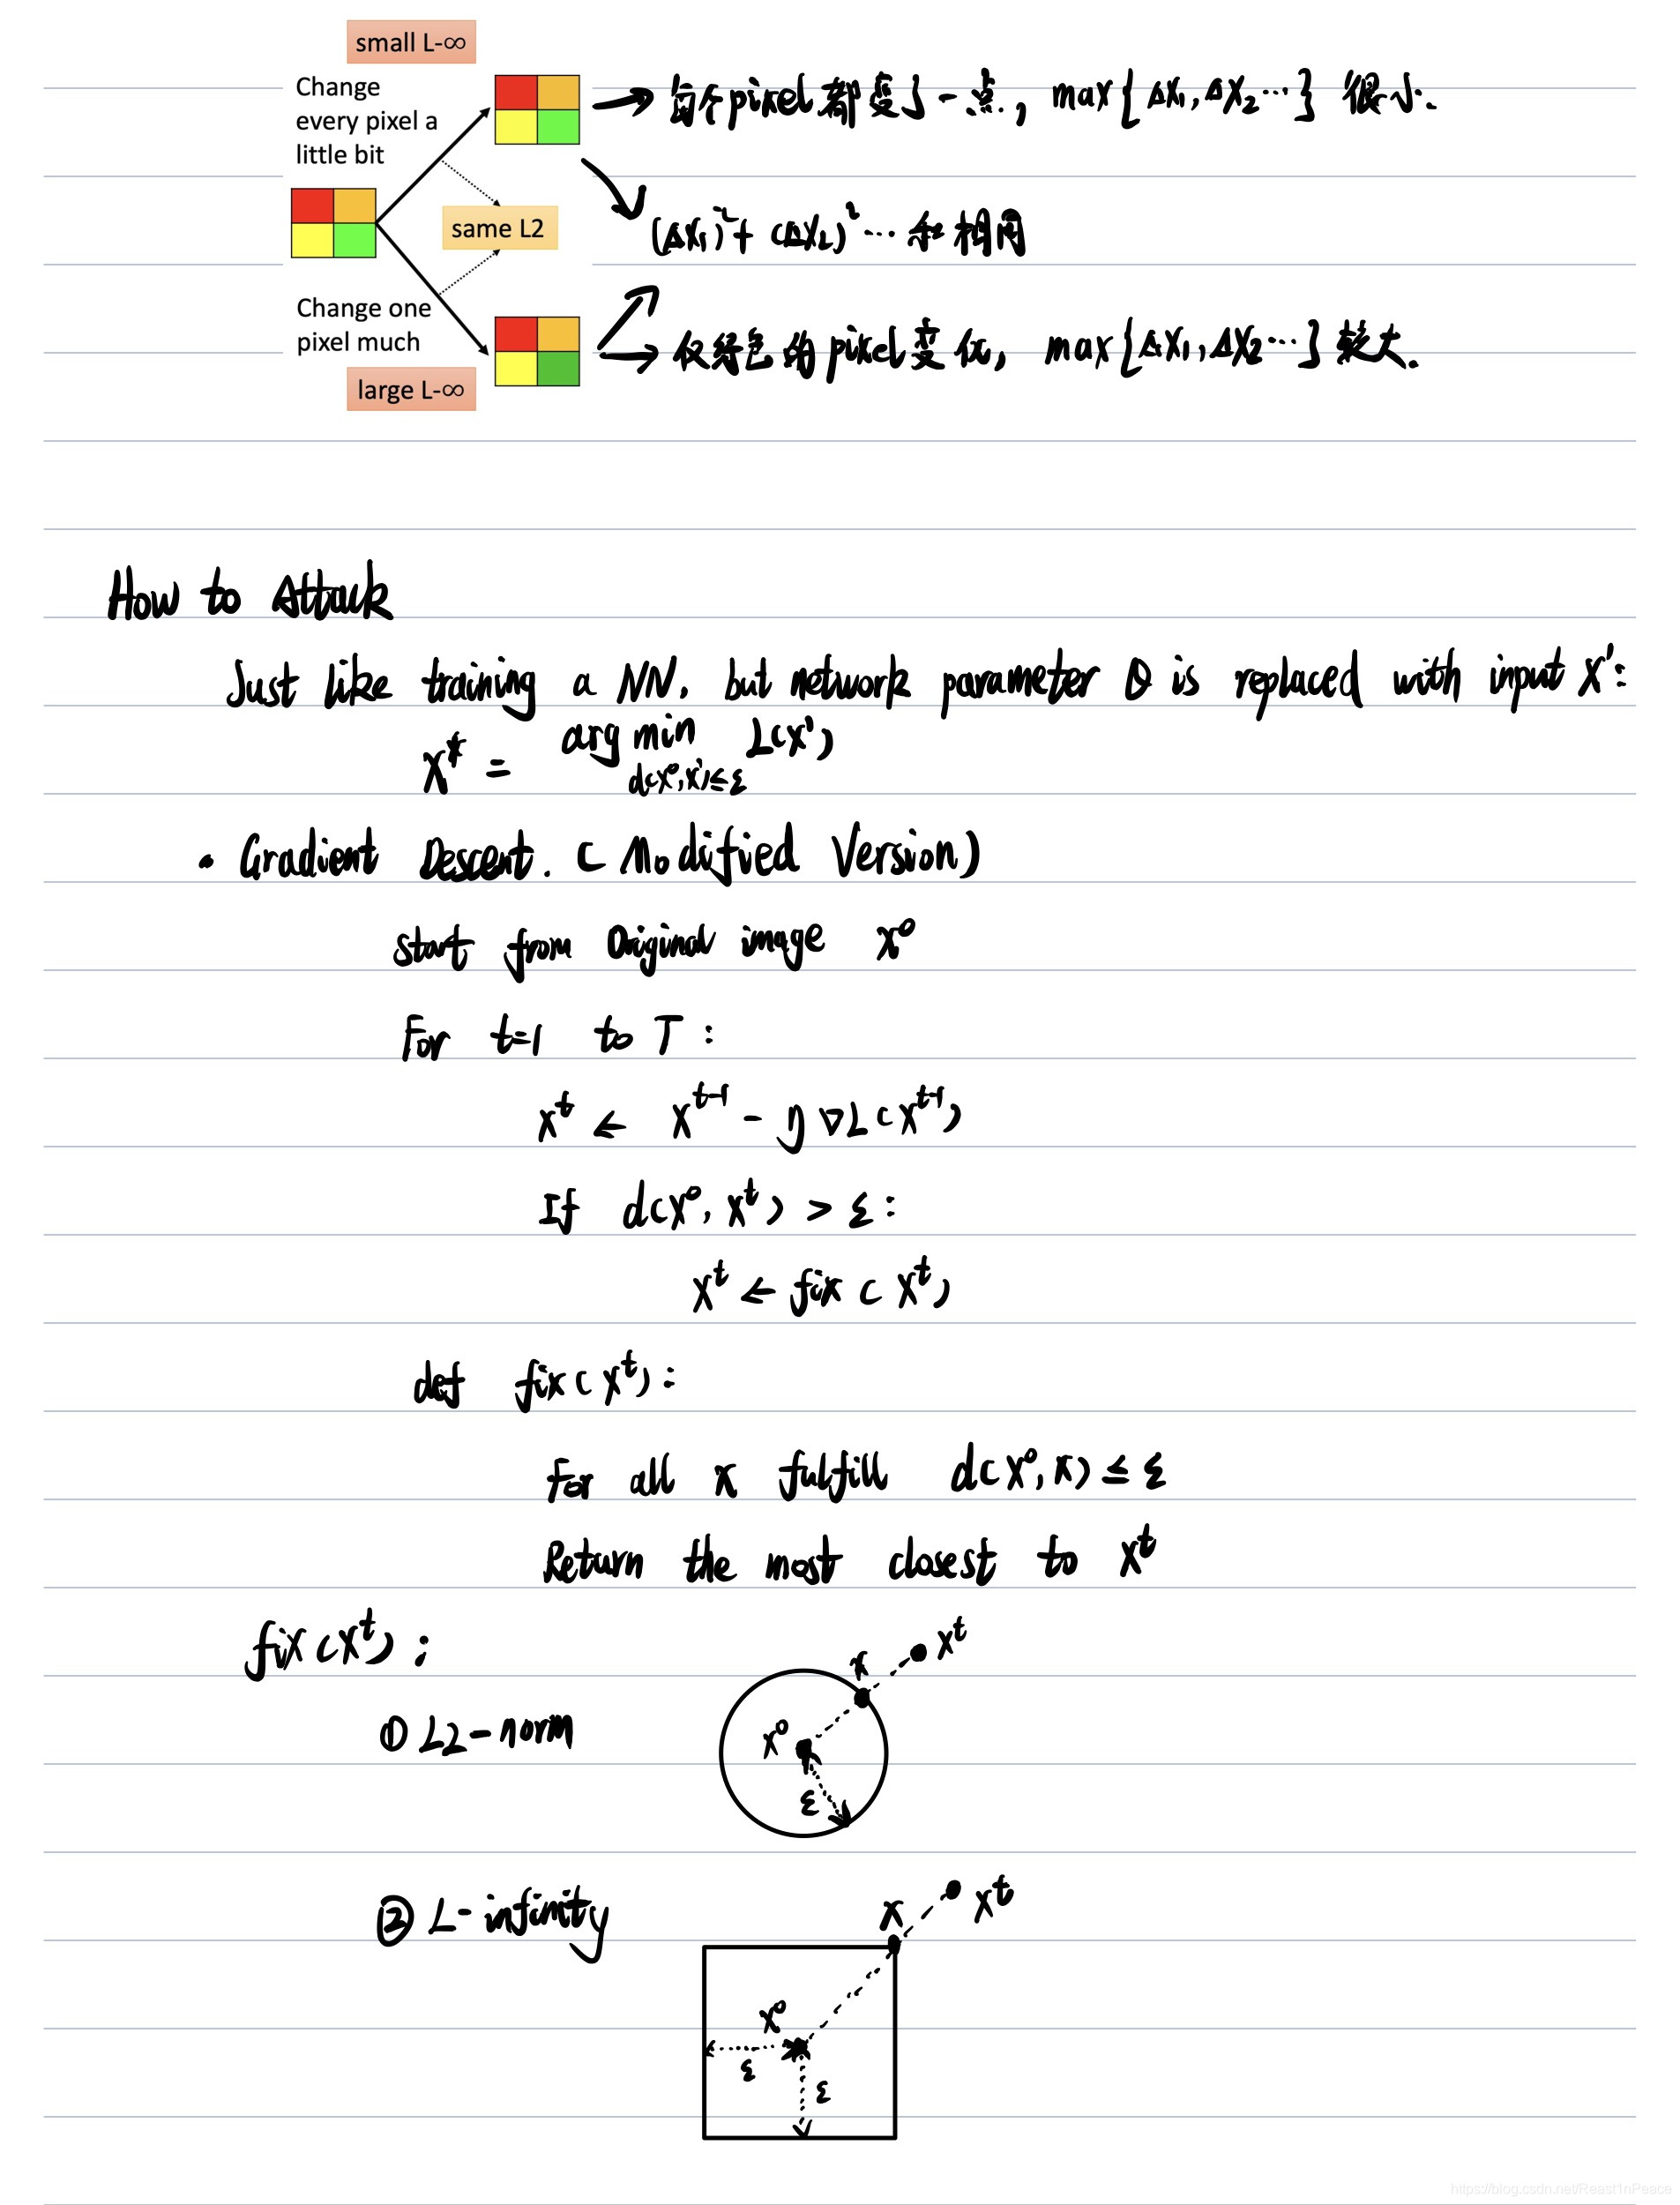 small L-∞
Change
every pixel a
little bit
→ 每个pixel都变了一点, max{Δx₁, Δx₂…} 很小.
same L2
(Δx₁)²+(Δx₂)²… 和相同
Change one
pixel much
→ 仅绿色的pixel变化, max{Δx₁, Δx₂…} 较大.
large L-∞
How to Attack
Just like training a NN, but network parameter θ is replaced with input x':
x* = arg min L(x')
d(x⁰, x')≤ε
• Gradient Descent. (Modified Version)
start from Original image x⁰
For t=1 to T:
xᵗ ← xᵗ⁻¹ - η∇L(xᵗ⁻¹)
If d(x⁰, xᵗ) > ε:
xᵗ ← fix(xᵗ)
def fix(xᵗ):
For all x fulfill d(x⁰, x) ≤ ε
Return the most closest to xᵗ
fix(xᵗ);
① L2-norm
x xᵗ
x⁰
ε
② L-infinity
x xᵗ
x⁰
ε
ε
https://blog.csdn.net/Reast1nPeace